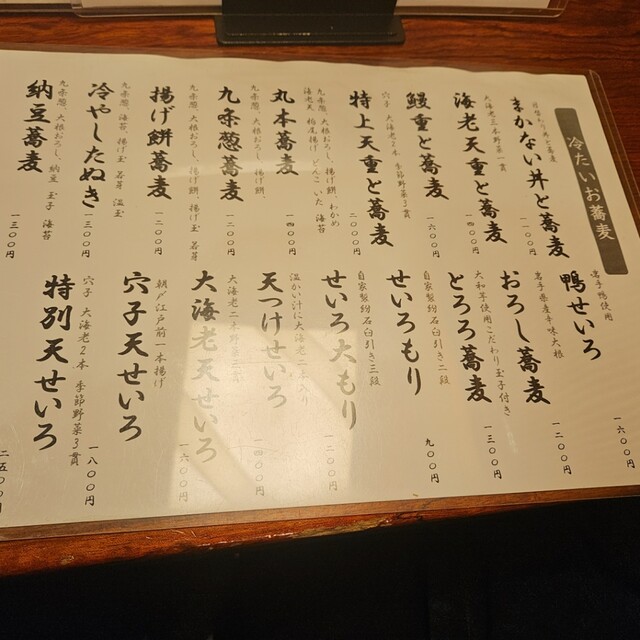 冷たいお蕎麦
日替わり丼と蕎麦
まかない丼と蕎麦
一一〇〇円
大海老三本野菜一貫
海老天重と蕎麦
一四〇〇円
鰻重と蕎麦
一六〇〇円
穴子 大海老2本 季節野菜3貫
特上天重と蕎麦
二〇〇〇円
九条葱、大根おろし、揚げ餅、わかめ
海老天 栃尾揚げ、どんこいた 海苔
丸本蕎麦
一四〇〇円
九条葱、大根おろし、揚げ餅
九条葱蕎麦
一二〇〇円
九条葱、大根おろし、揚げ餅、揚げ玉 若芽
揚げ餅蕎麦
一二〇〇円
九条葱、海苔、揚げ玉 若芽 温玉
冷やしたぬき
一三〇〇円
九条葱、大根おろし、納豆 玉子 海苔
納豆蕎麦
一三〇〇円
岩手鴨使用
鴨せいろ
一六〇〇円
岩手県産辛味大根
おろし蕎麦
一二〇〇円
大和芋使用こだわり玉子付き
とろろ蕎麦
一三〇〇円
自家製粉石臼引き二段
せいろもり
九〇〇円
自家製粉石臼引き三段
せいろ大もり
一二〇〇円
温かい汁に大海老一本入り
天つけせいろ
一四〇〇円
大海老二本野菜三貫
大海老天せいろ
一六〇〇円
朝〆江戸前一本揚げ
穴子天せいろ
一八〇〇円
穴子 大海老2本 季節野菜3貫
特別天せいろ
二五〇〇円